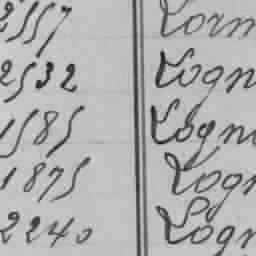 2557 Lorn
2532 Logn
1585 Logn
1875 Logn
2240 Logn